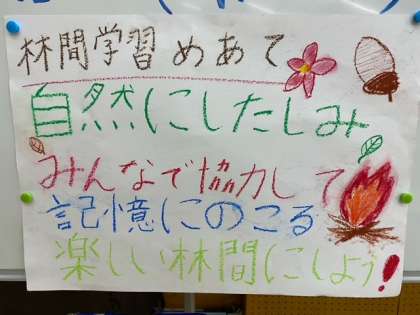 林間学習めあて
自然にしたしみ
みんなで協力して
記憶にのこる
楽しい林間にしよう!